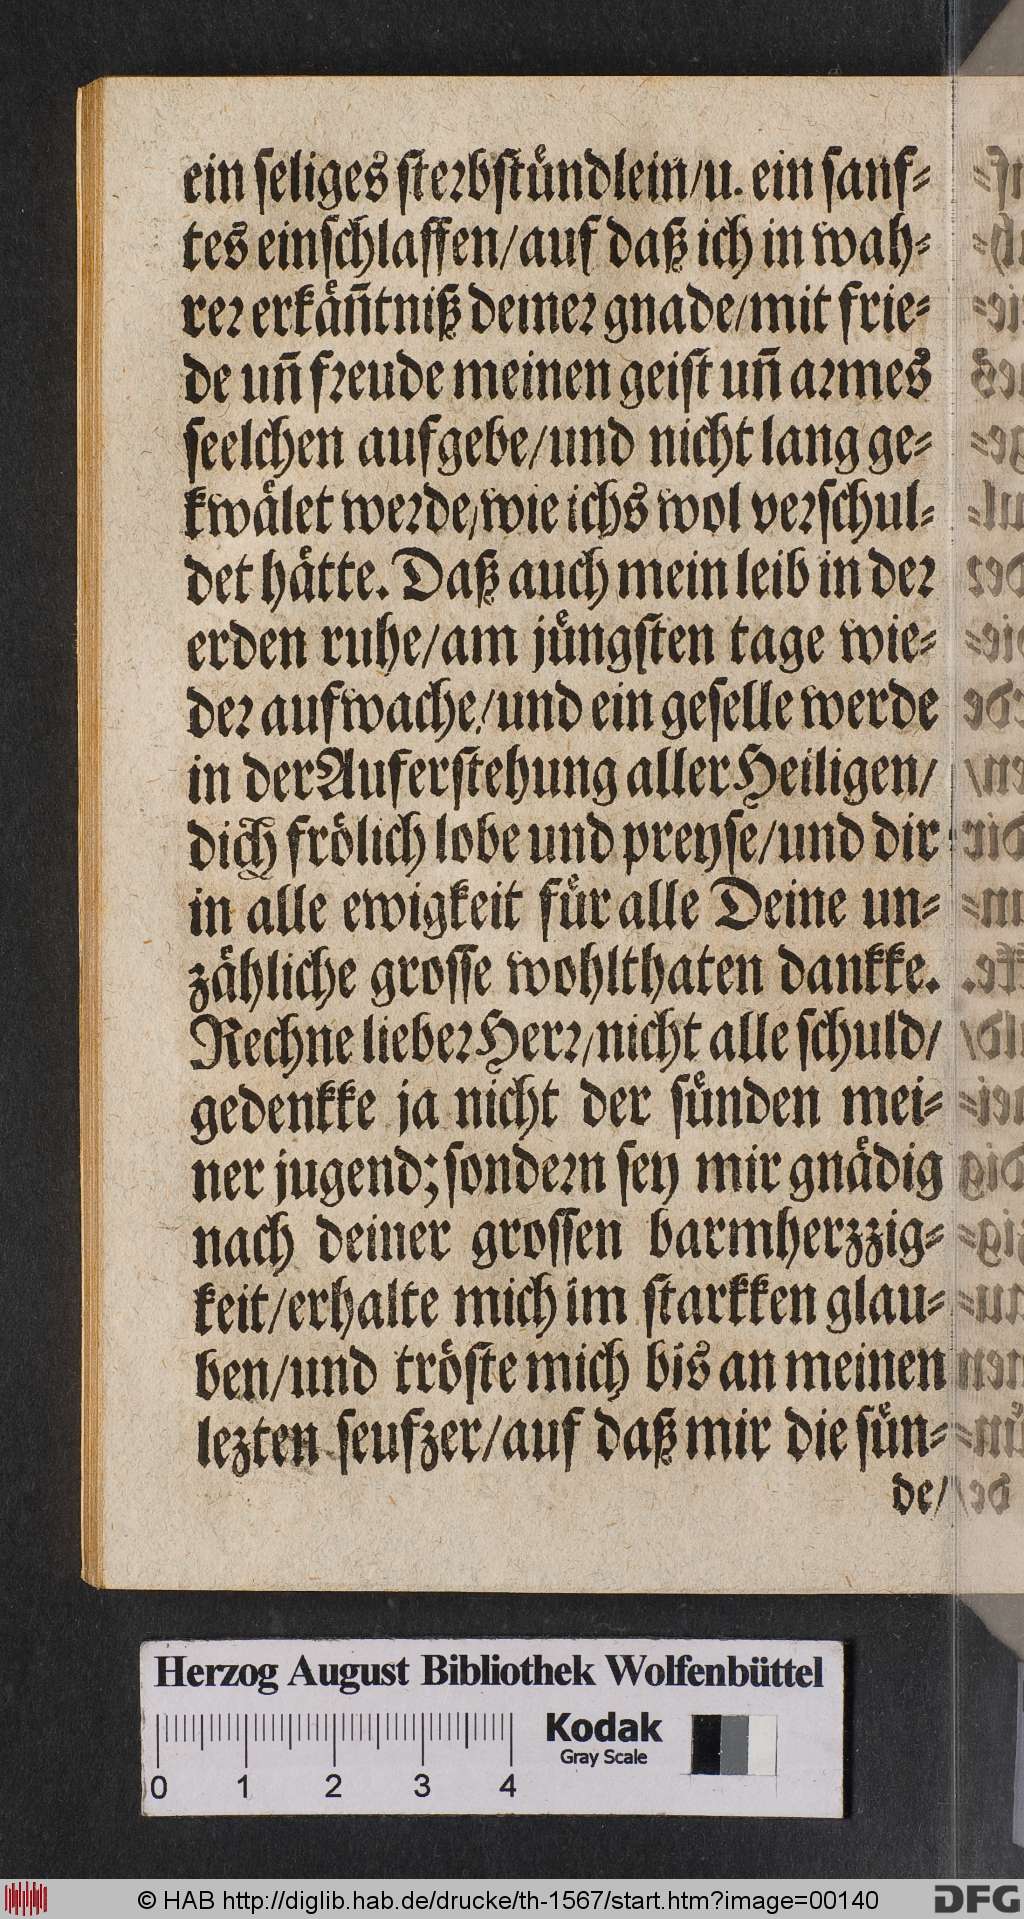 ein seliges sterbstündlein/u. ein sanf-
tes einschlaffen/auf daß ich in wah-
rer erkäñtniß deiner gnade/mit frie-
de uñ freude meinen geist uñ armes
seelchen aufgebe/und nicht lang ge-
kwälet werde/wie ichs wol verschul-
det hätte. Daß auch mein leib in der
erden ruhe/am jüngsten tage wie-
der aufwache/und ein geselle werde
in der Auferstehung aller Heiligen/
dich frölich lobe und preyse/und dir
in alle ewigkeit für alle Deine un-
zähliche grosse wohlthaten dankke.
Rechne lieber Herr/nicht alle schuld/
gedenkke ja nicht der sünden mei-
ner jugend; sondern sey mir gnädig
nach deiner grossen barmherzzig-
keit/erhalte mich im starkken glau-
ben/und tröste mich bis an meinen
lezten seufzer/auf daß mir die sün-
de/
Herzog August Bibliothek Wolfenbüttel
0 1 2 3 4
Kodak
Gray Scale
© HAB http://diglib.hab.de/drucke/th-1567/start.htm?image=00140
DFG